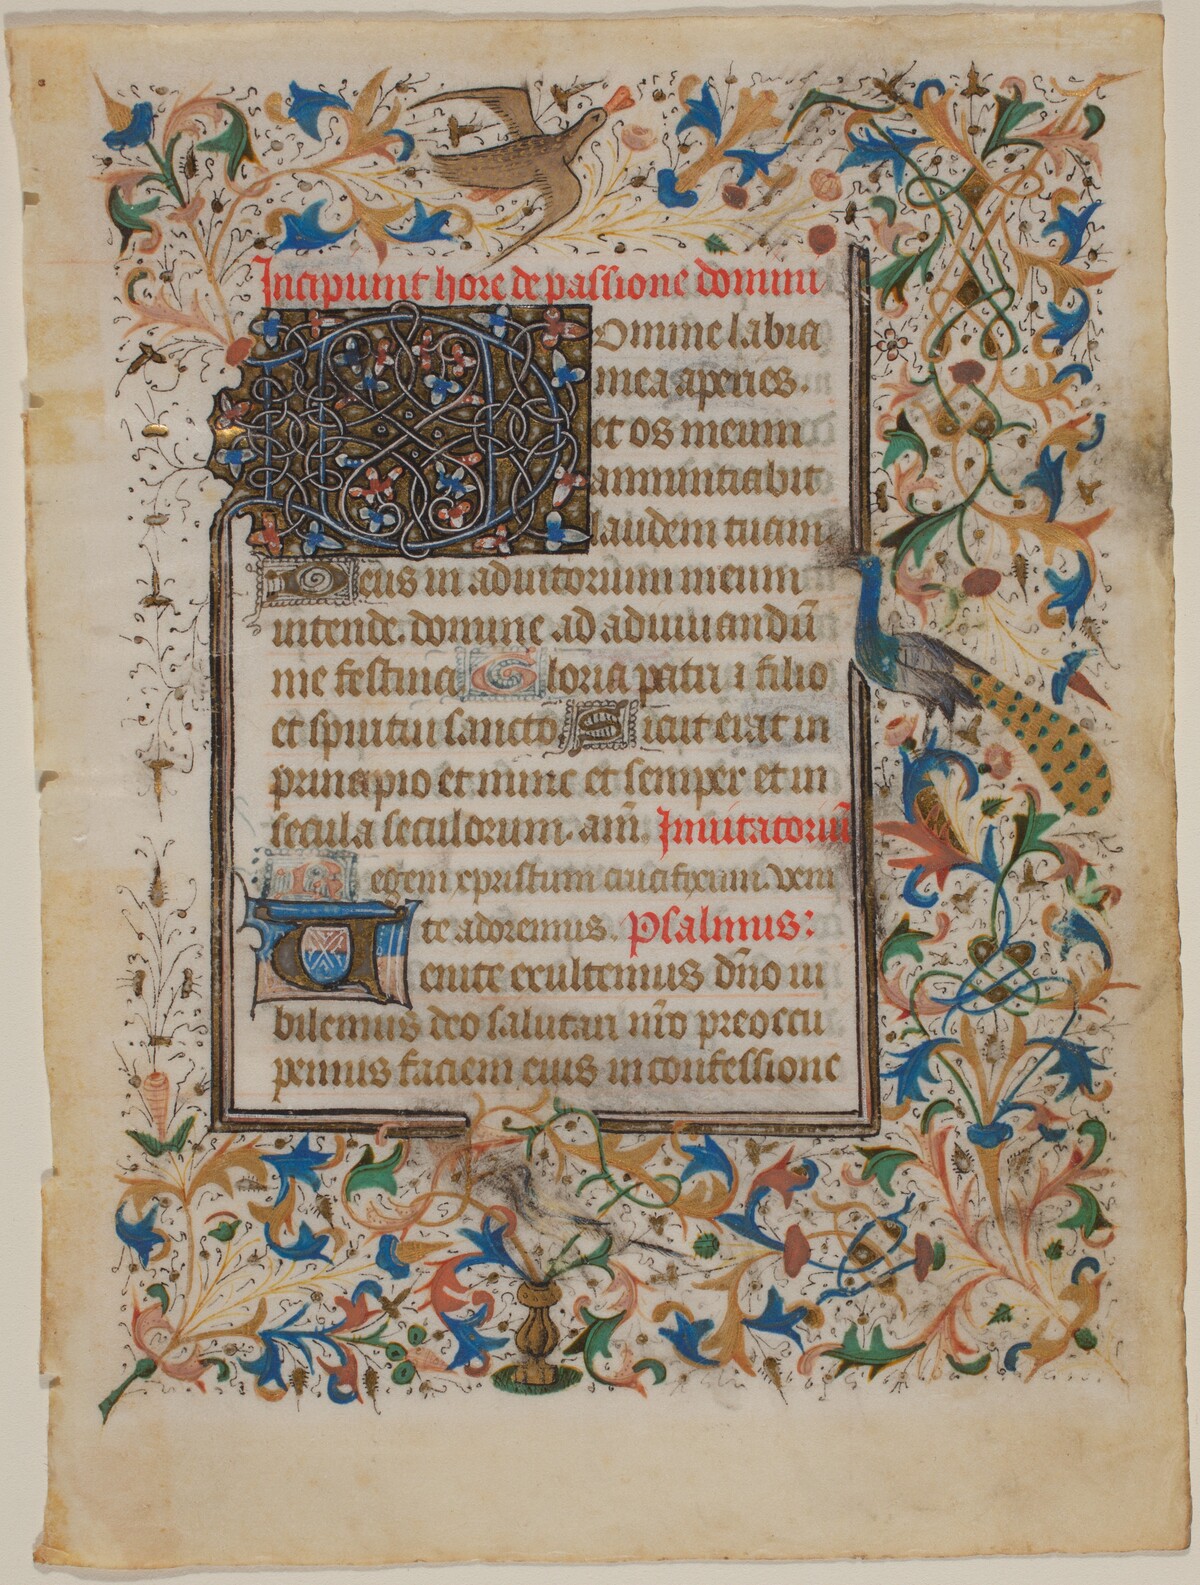 Incipiunt hore de passione domini
Domine labia
mea aperies.
et os meum
annunciabit
laudem tuam
Deus in adiutorium meum
intende. domine ad adiuuandū
me festina Gloria patri ⁊ filio
et spiritui sancto Sicut erat in
principio et nunc et semper et in
secula seculorum. am̄. Inuitatoriū
Regem xpristum crucifixum. veni
te adoremus. Psalmus:
Uenite exultemus dn̄o iu
bilemus deo salutari nr̄o preoccu
pemus faciem eius in confessione